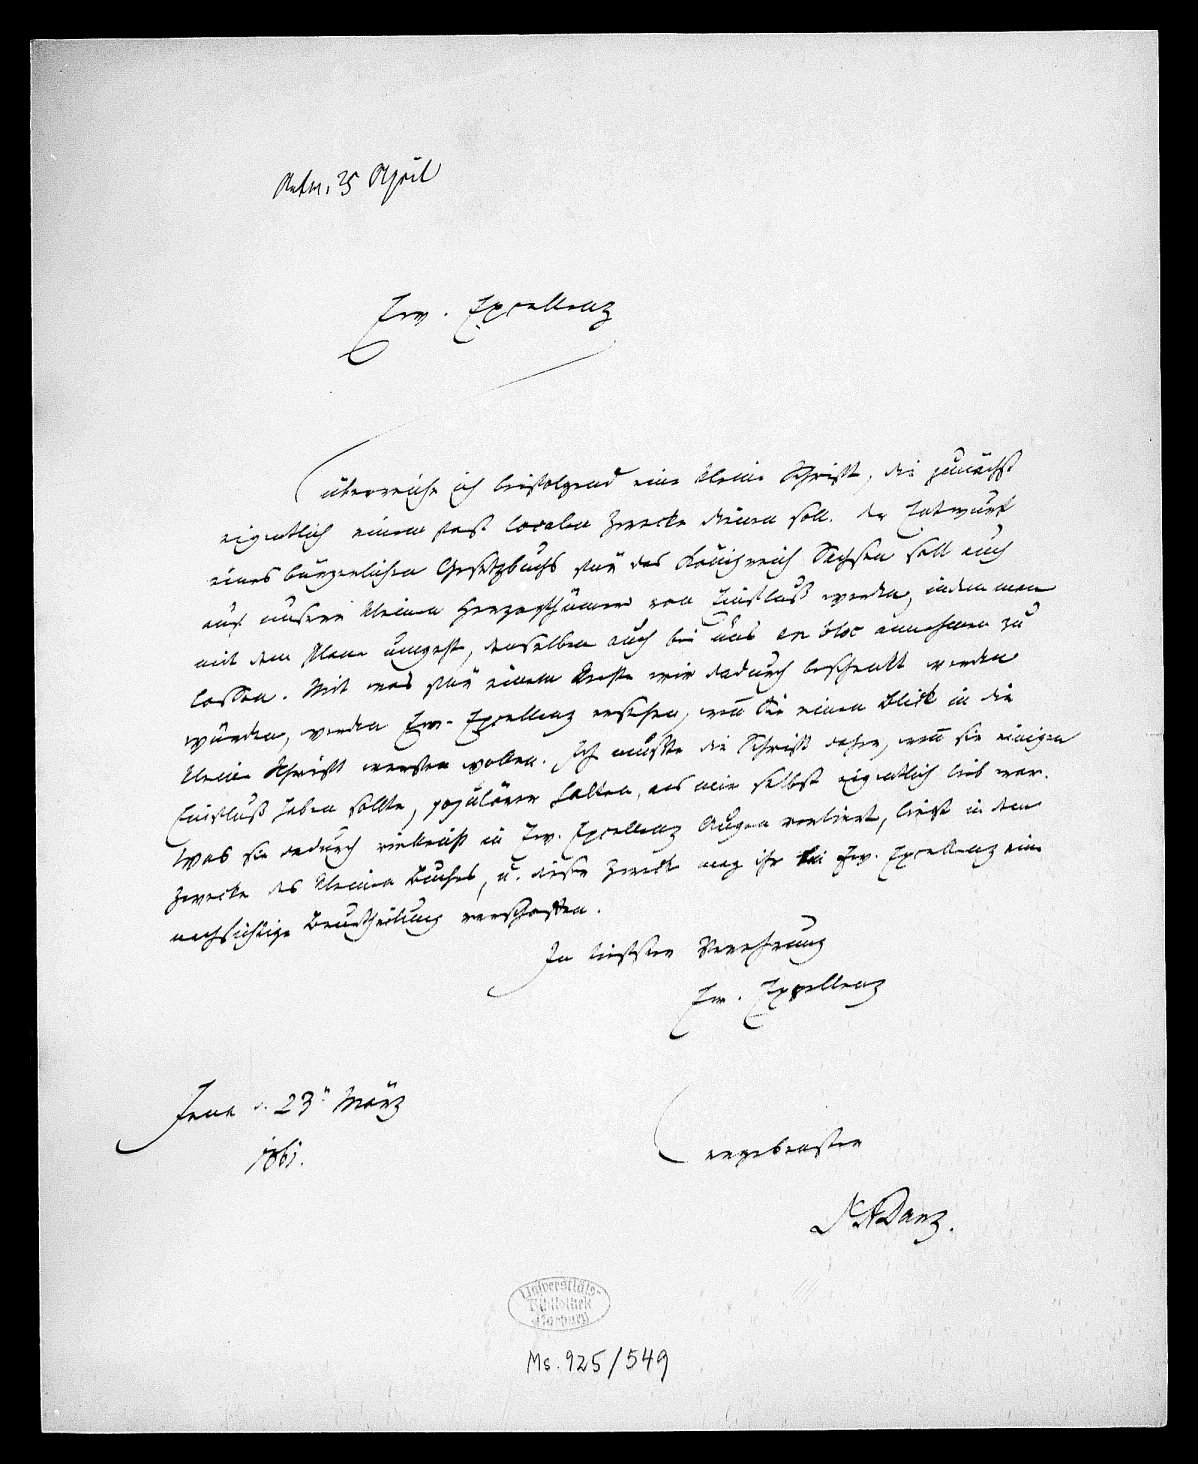 Antw. 25 April
Ew. Excellenz
überreiche ich beifolgend eine kleine Schrift, die zunächst
eigentlich einem fast localen Zwecke dienen soll. Der Entwurf
eines bürgerlichen Gesetzbuchs für das Königreich Sachsen soll auch
auf unsere kleinen Herzogthümer von Einfluß werden, indem man
mit dem Plane umgeht, denselben auch bei uns en bloc annehmen zu
lassen. Mit was für einem Rechte wir dadurch beschenkt werden
würden, werden Ew. Excellenz ersehen, wenn Sie einen Blick in die
kleine Schrift werfen wollen. Ich mußte die Schrift daher, wenn sie einigen
Einfluß haben sollte, populärer halten, als mir selbst eigentlich lieb war.
Was sie dadurch vielleicht in Ew. Excellenz Augen verliert, liegt in dem
Zwecke des kleinen Buches, u. dieser Zweck mag ihr bei Ew. Excellenz eine
nachsichtige Beurtheilung verschaffen.
In tiefster Verehrung
Ew. Excellenz
Jena d. 23n März
1861.
ergebenster
Danz.
Universitäts-
Bibliothek
Marburg
Ms. 925/549